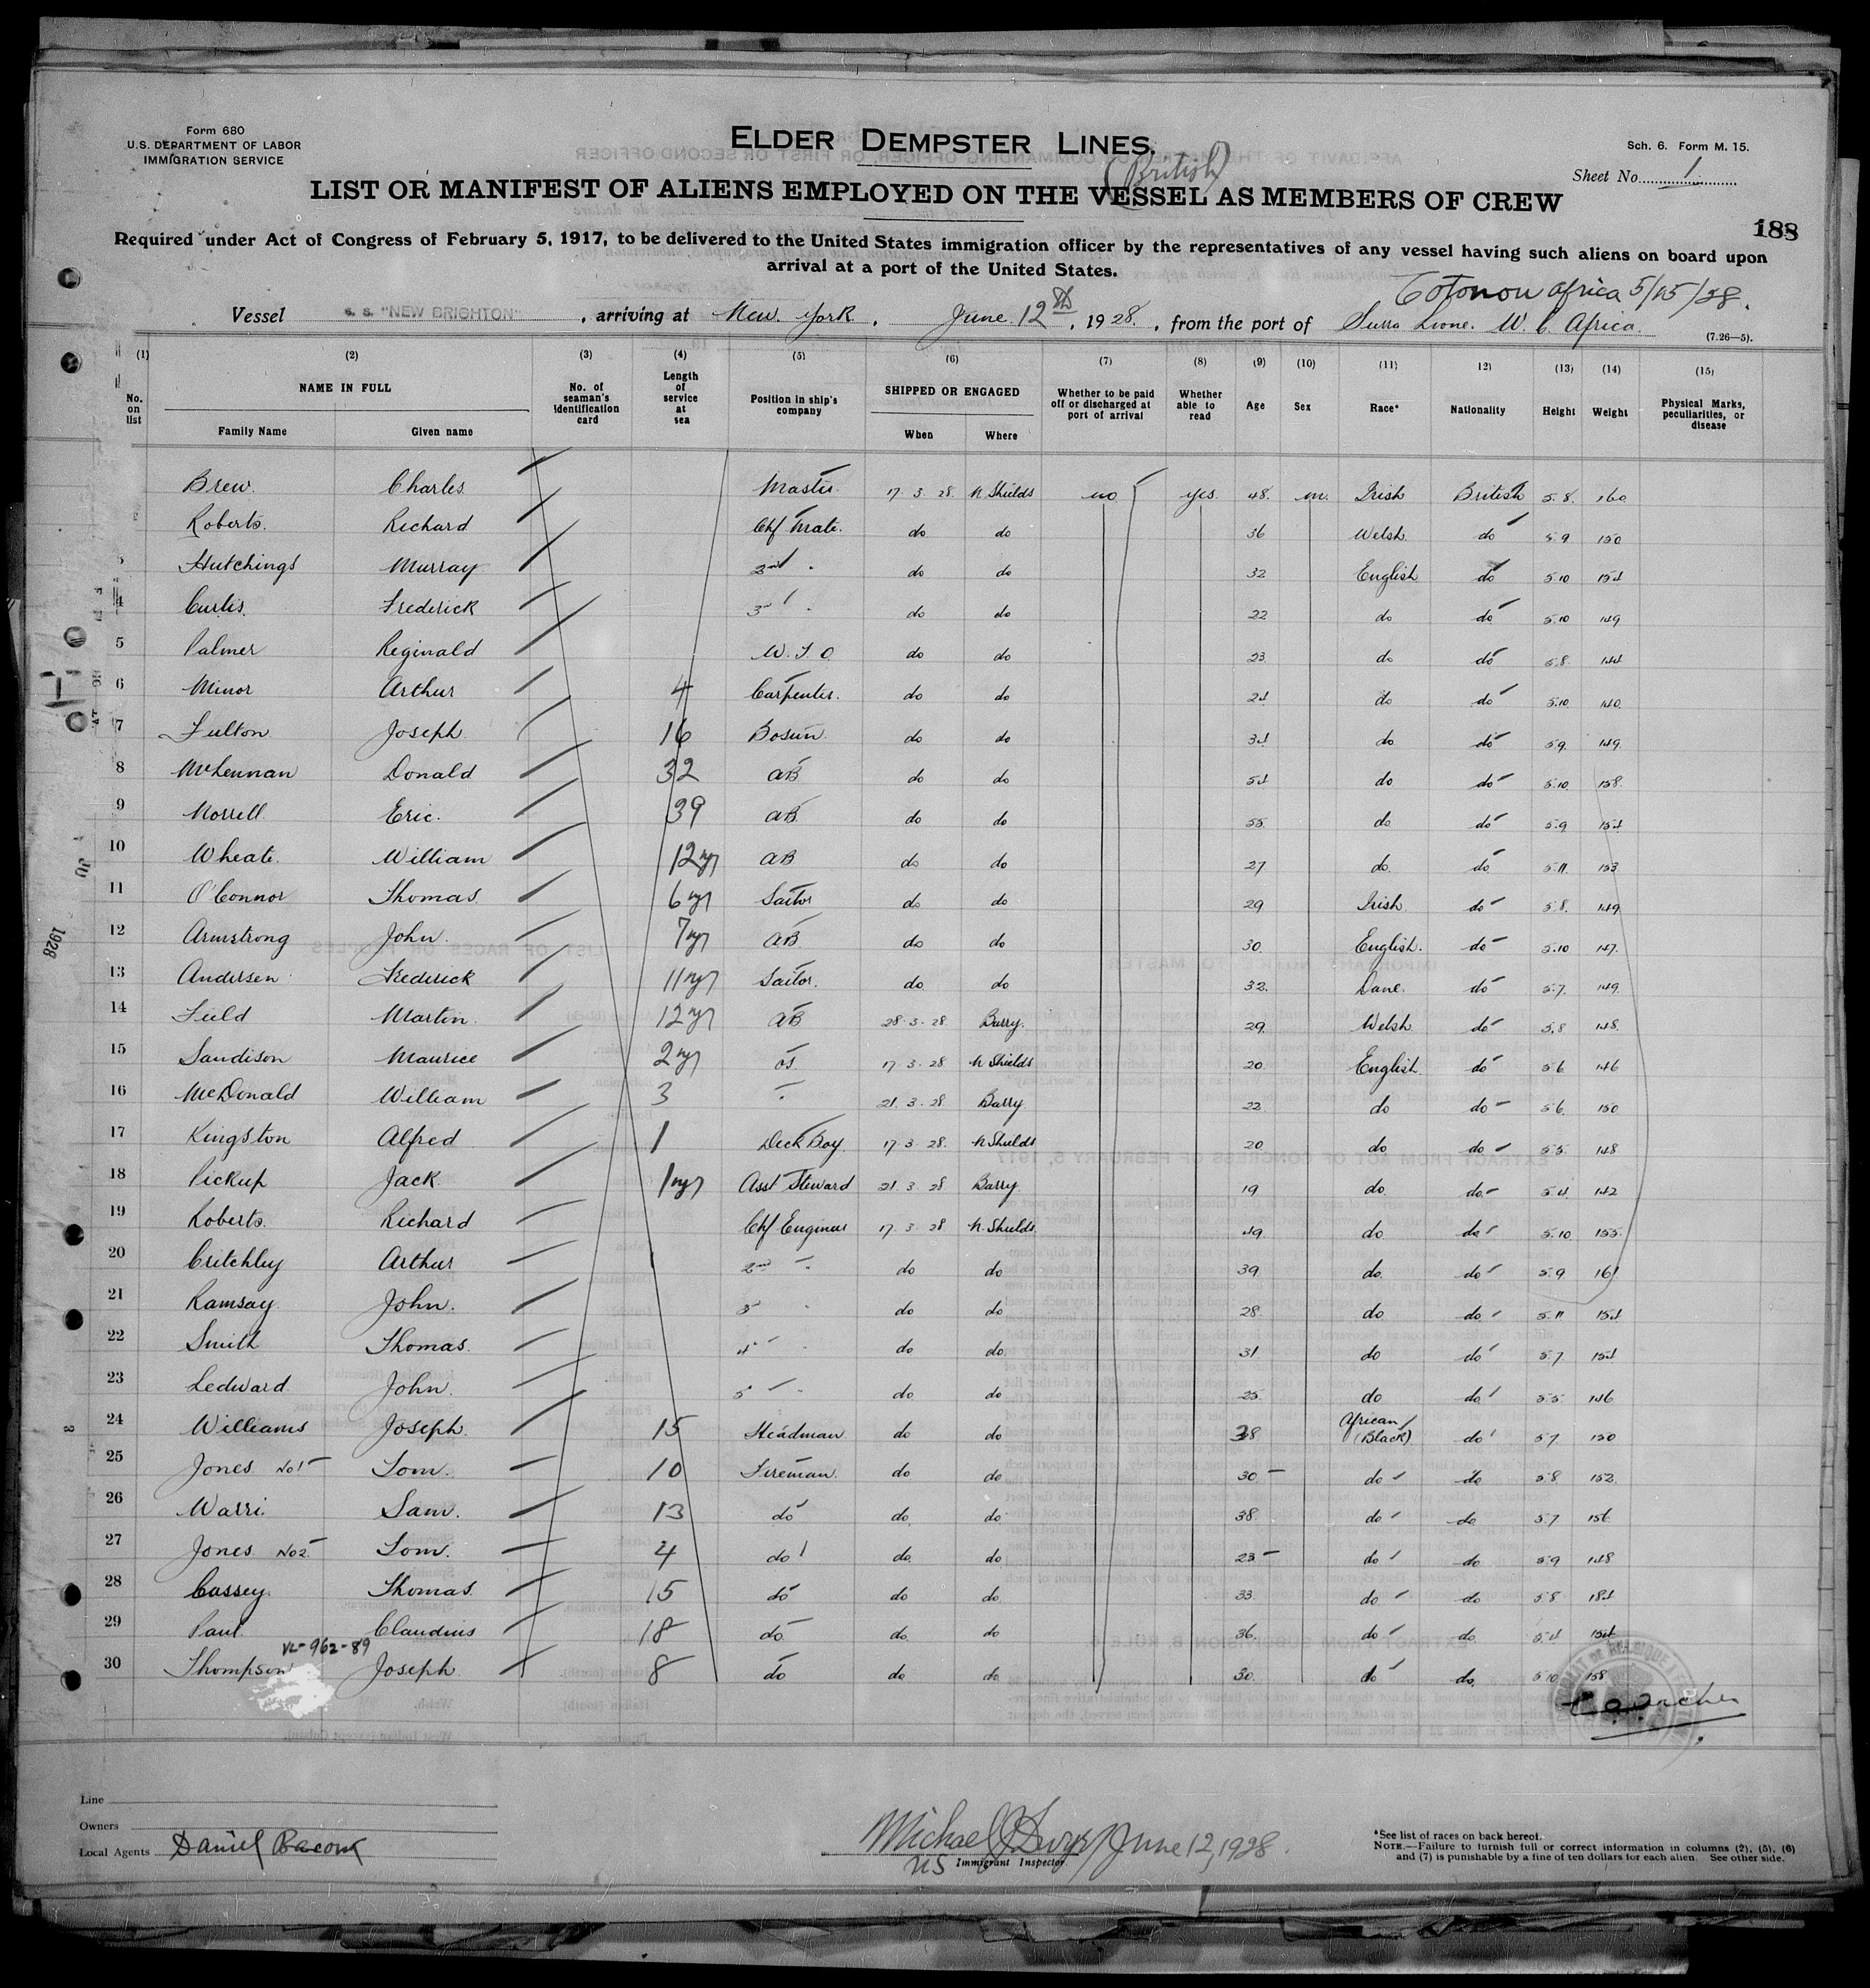 Form 680
U.S. DEPARTMENT OF LABOR
IMMIGRATION SERVICE
ELDER DEMPSTER LINES.
(British)
Sch. 6. Form M. 15.
Sheet No. 1
LIST OR MANIFEST OF ALIENS EMPLOYED ON THE VESSEL AS MEMBERS OF CREW
188
Required under Act of Congress of February 5, 1917, to be delivered to the United States immigration officer by the representatives of any vessel having such aliens on board upon
arrival at a port of the United States.
Cotonou Africa 5/15/28.
Vessel S. S. "NEW BRIGHTON", arriving at New York, June 12th, 1928, from the port of Sierra Leone. W. C. Africa.
(7.26—5).
(1) (2) (3) (4) (5) (6) (7) (8) (9) (10) (11) 12) (13) (14) (15)
No. on list NAME IN FULL Family Name Given name No. of seaman's identification card Length of service at sea Position in ship's company SHIPPED OR ENGAGED When Where Whether to be paid off or discharged at port of arrival Whether able to read Age Sex Race* Nationality Height Weight Physical Marks, peculiarities, or disease
Brew. Charles Master. 17. 3. 28. N Shields no yes 48. m. Irish British 5.8. 160
Roberts. Richard Chf Mate. do do 36 Welsh do 5.9 150
3 Hutchings Murray 2nd " do do 32 English do 5.10 154
4 Curtis. Frederick 3rd " do do 22 do do 5.10 149
5 Palmer Reginald W. T. O. do do 23 do do 5.8. 144
6 Minor Arthur 4 Carpenter. do do 24 do do 5.10 140
7 Fulton Joseph 16 Bosun. do do 34 do do 5.9. 149.
8 McLennan Donald 32 AB do do 54 do do 5.10. 158.
9 Morrell Eric. 39 AB. do do 55 do do 5.9 154
10 Wheate. William 12 yr AB do do 27 do. do 5.11. 153
11 O'Connor Thomas. 6 yr Sailor do do 29 Irish do 5.8. 149
12 Armstrong John. 7 yr AB do do 30. English. do 5.10 147.
13 Andersen Frederick 11 yr Sailor. do do 32. Dane. do 5.7. 149
14 Field Martin. 12 yr AB 28. 3. 28 Barry. 29. Welsh do 5.8 148.
15 Sandison Maurice 2 yr OS. 17. 3. 28. N Shields 20. English. do 5.6 146
16 McDonald William 3 " 21. 3. 28. Barry 22 do do 5.6. 150
17 Kingston Alfred 1 Deck Boy. 17. 3. 28. N Shields 20 do do 5.5. 148
18 Pickup Jack 1 yr Asst Steward 21. 3. 28 Barry 19 do. do. 5.4. 142
19 Roberts. Richard Chf Engineer 17. 3. 28 N. Shields. 49. do do 5.10. 155.
20 Critchley Arthur 2nd " do do 39 do. do 5.9 161
21 Ramsay John. 3rd " do do 28. do do. 5.11 154
22 Smith Thomas. 4th " do do 31. do do 5.7 154
23 Ledward John. 5th " do do 25. do do 5.5. 146
24 Williams Joseph. 15 Headman do do 38 African (Black) do 5.7. 150
25 Jones No 1 Tom. 10 Fireman. do do 30 do do 5.8 152.
26 Warri. Sam. 13 do do. do 38 do do 5.7 156
27 Jones. No 2. Tom. 4 do do. do 23 do do 5.9 148
28 Cassey. Thomas. 15 do do do 33. do do 5.8 184
29 Paul. Claudius 18 do. do. do 36. do do. 5.4 154
VL-962-89
30 Thompson Joseph 8 do do do 30. do do. 5.10 158
Line
Owners
Local Agents Daniel Bacon
June 12, 1928.
US Immigrant Inspector.
*See list of races on back hereof.
NOTE.—Failure to furnish full or correct information in columns (2), (5), (6)
and (7) is punishable by a fine of ten dollars for each alien. See other side.
1928